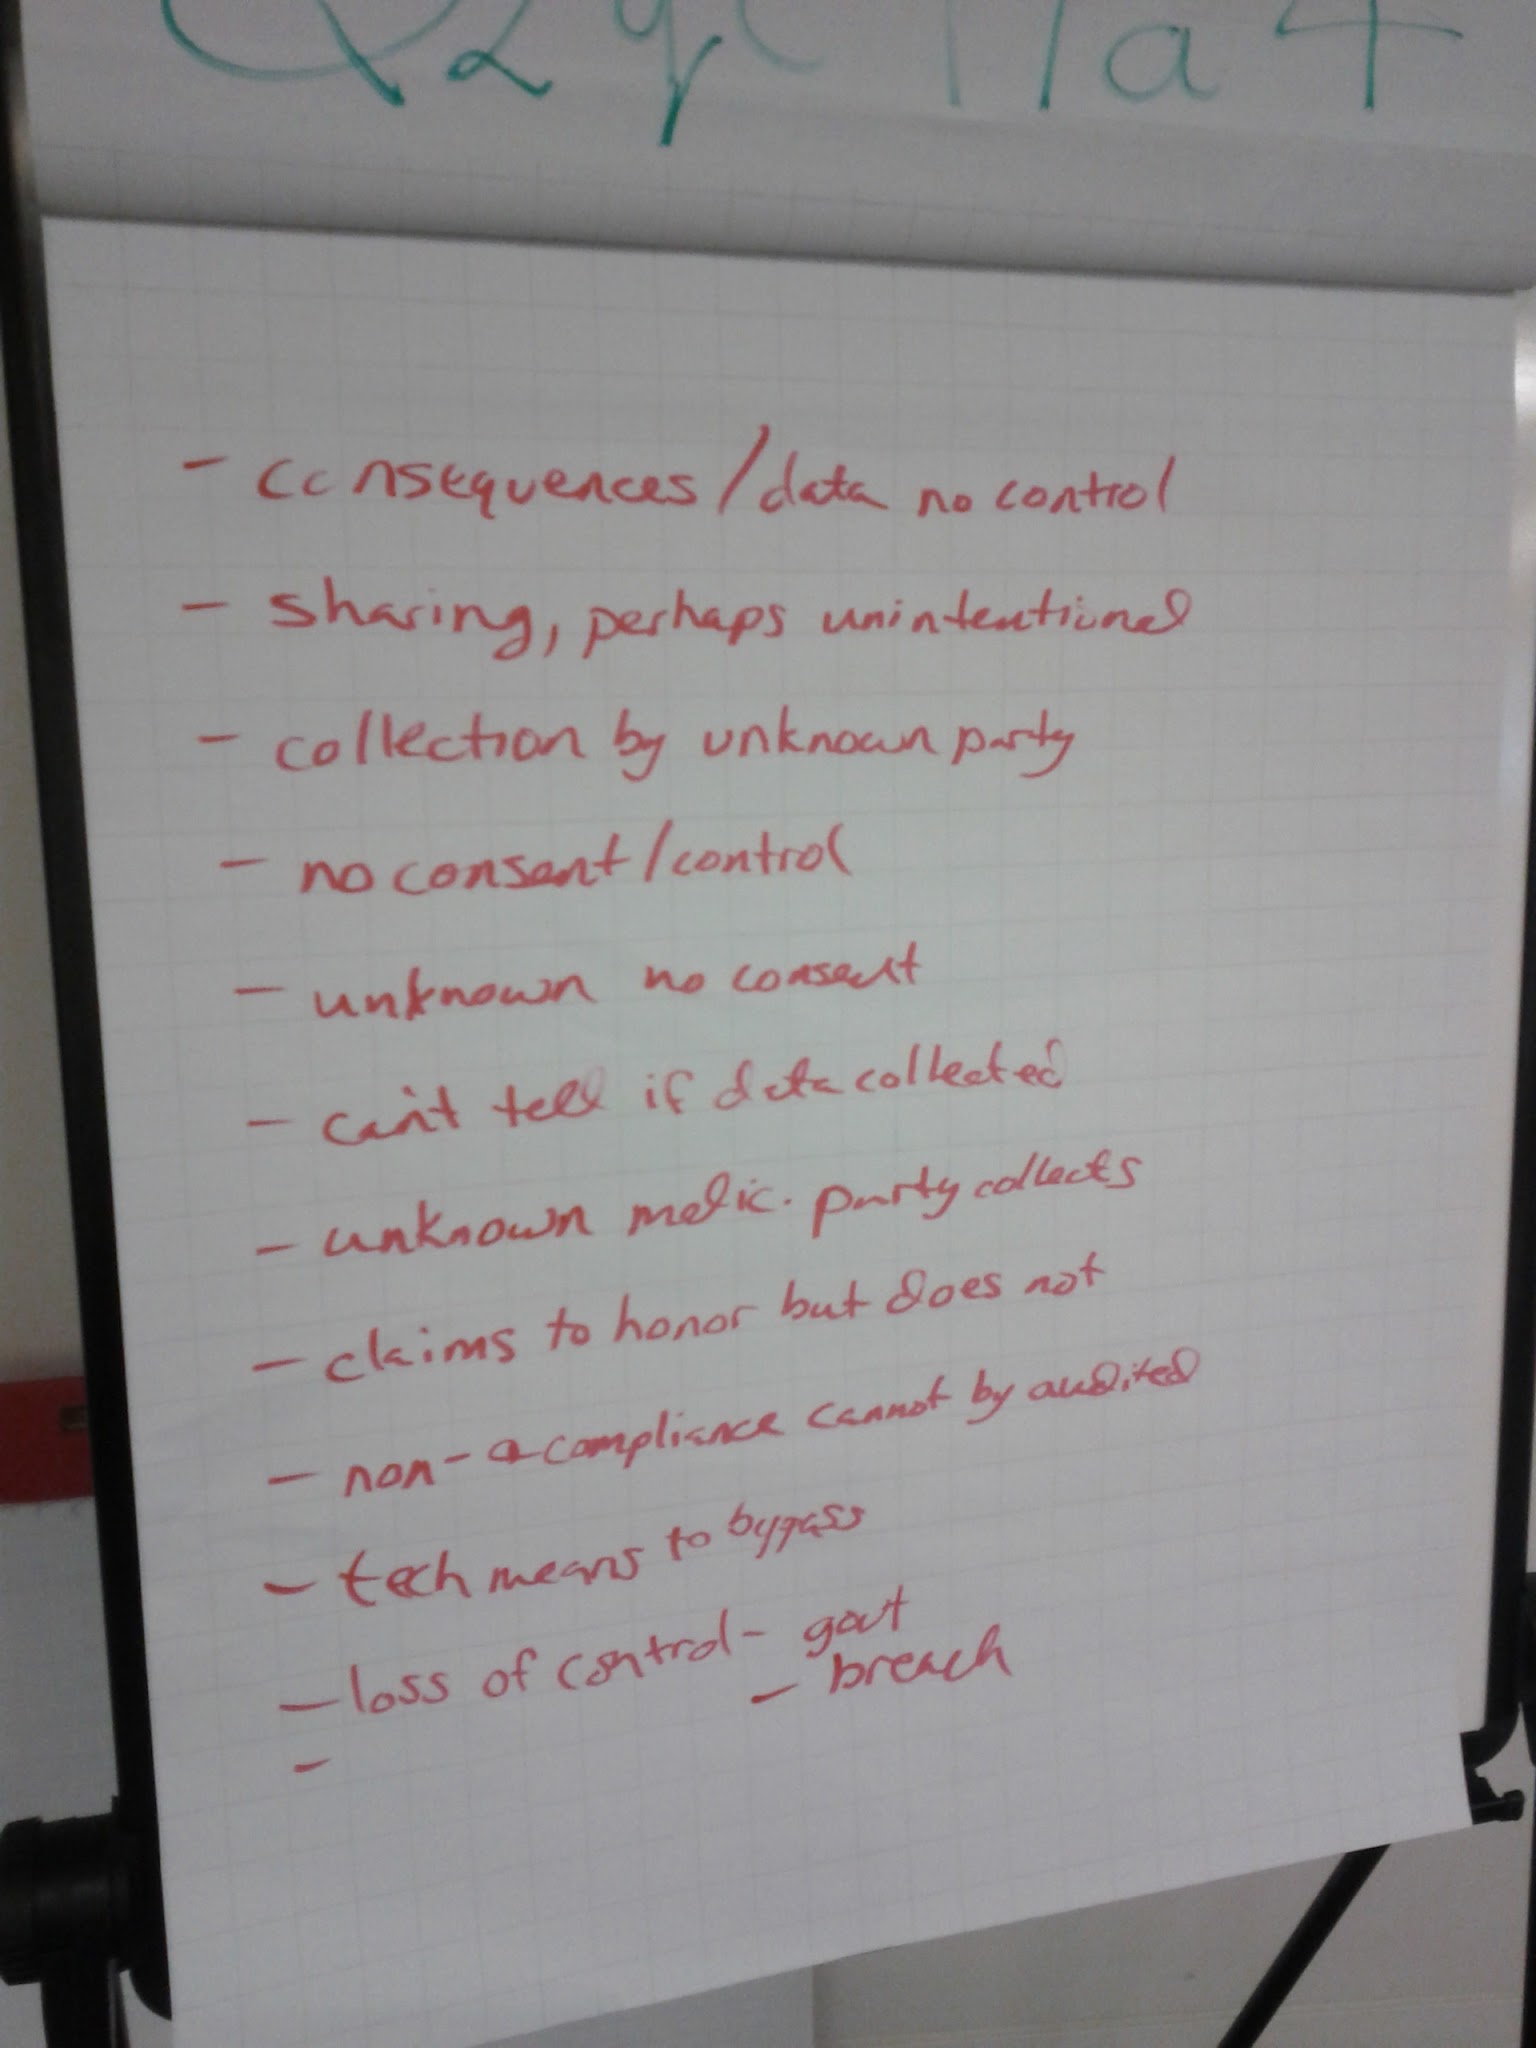 - consequences/data no control
- sharing, perhaps unintentional
- collection by unknown party
- no consent/control
- unknown no consent
- can't tell if data collected
- unknown malic. party collects
- claims to honor but does not
- non-compliance cannot by audited
- tech means to bypass
- loss of control - govt
- breach
-